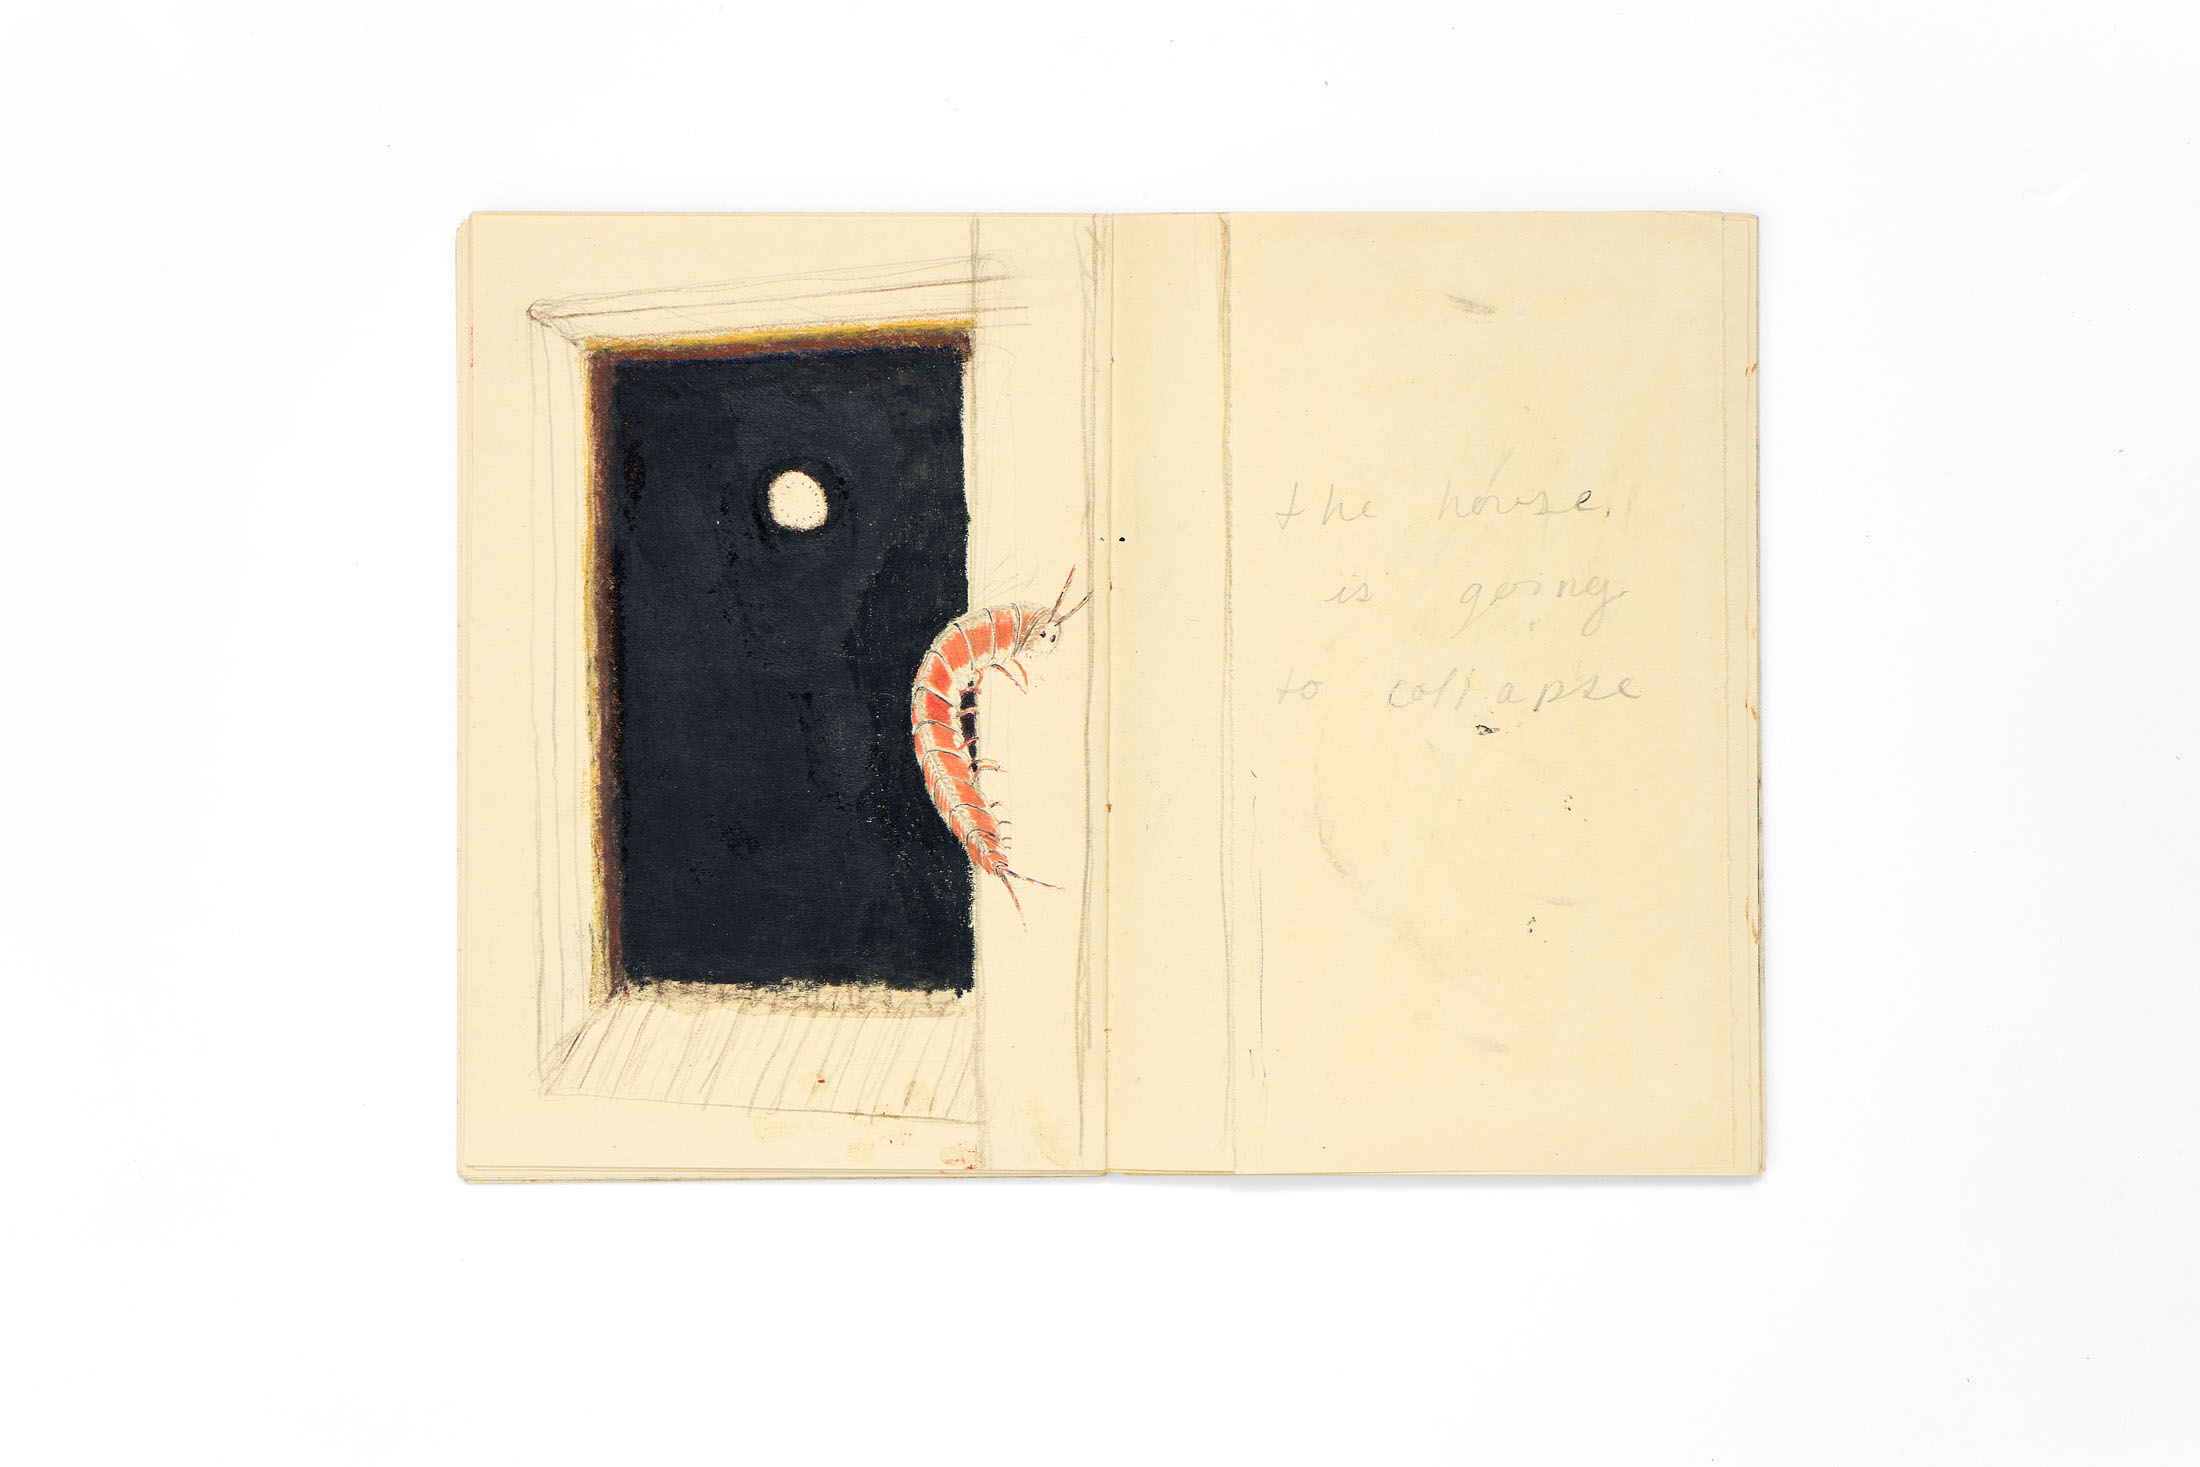 the house
is going
to collapse